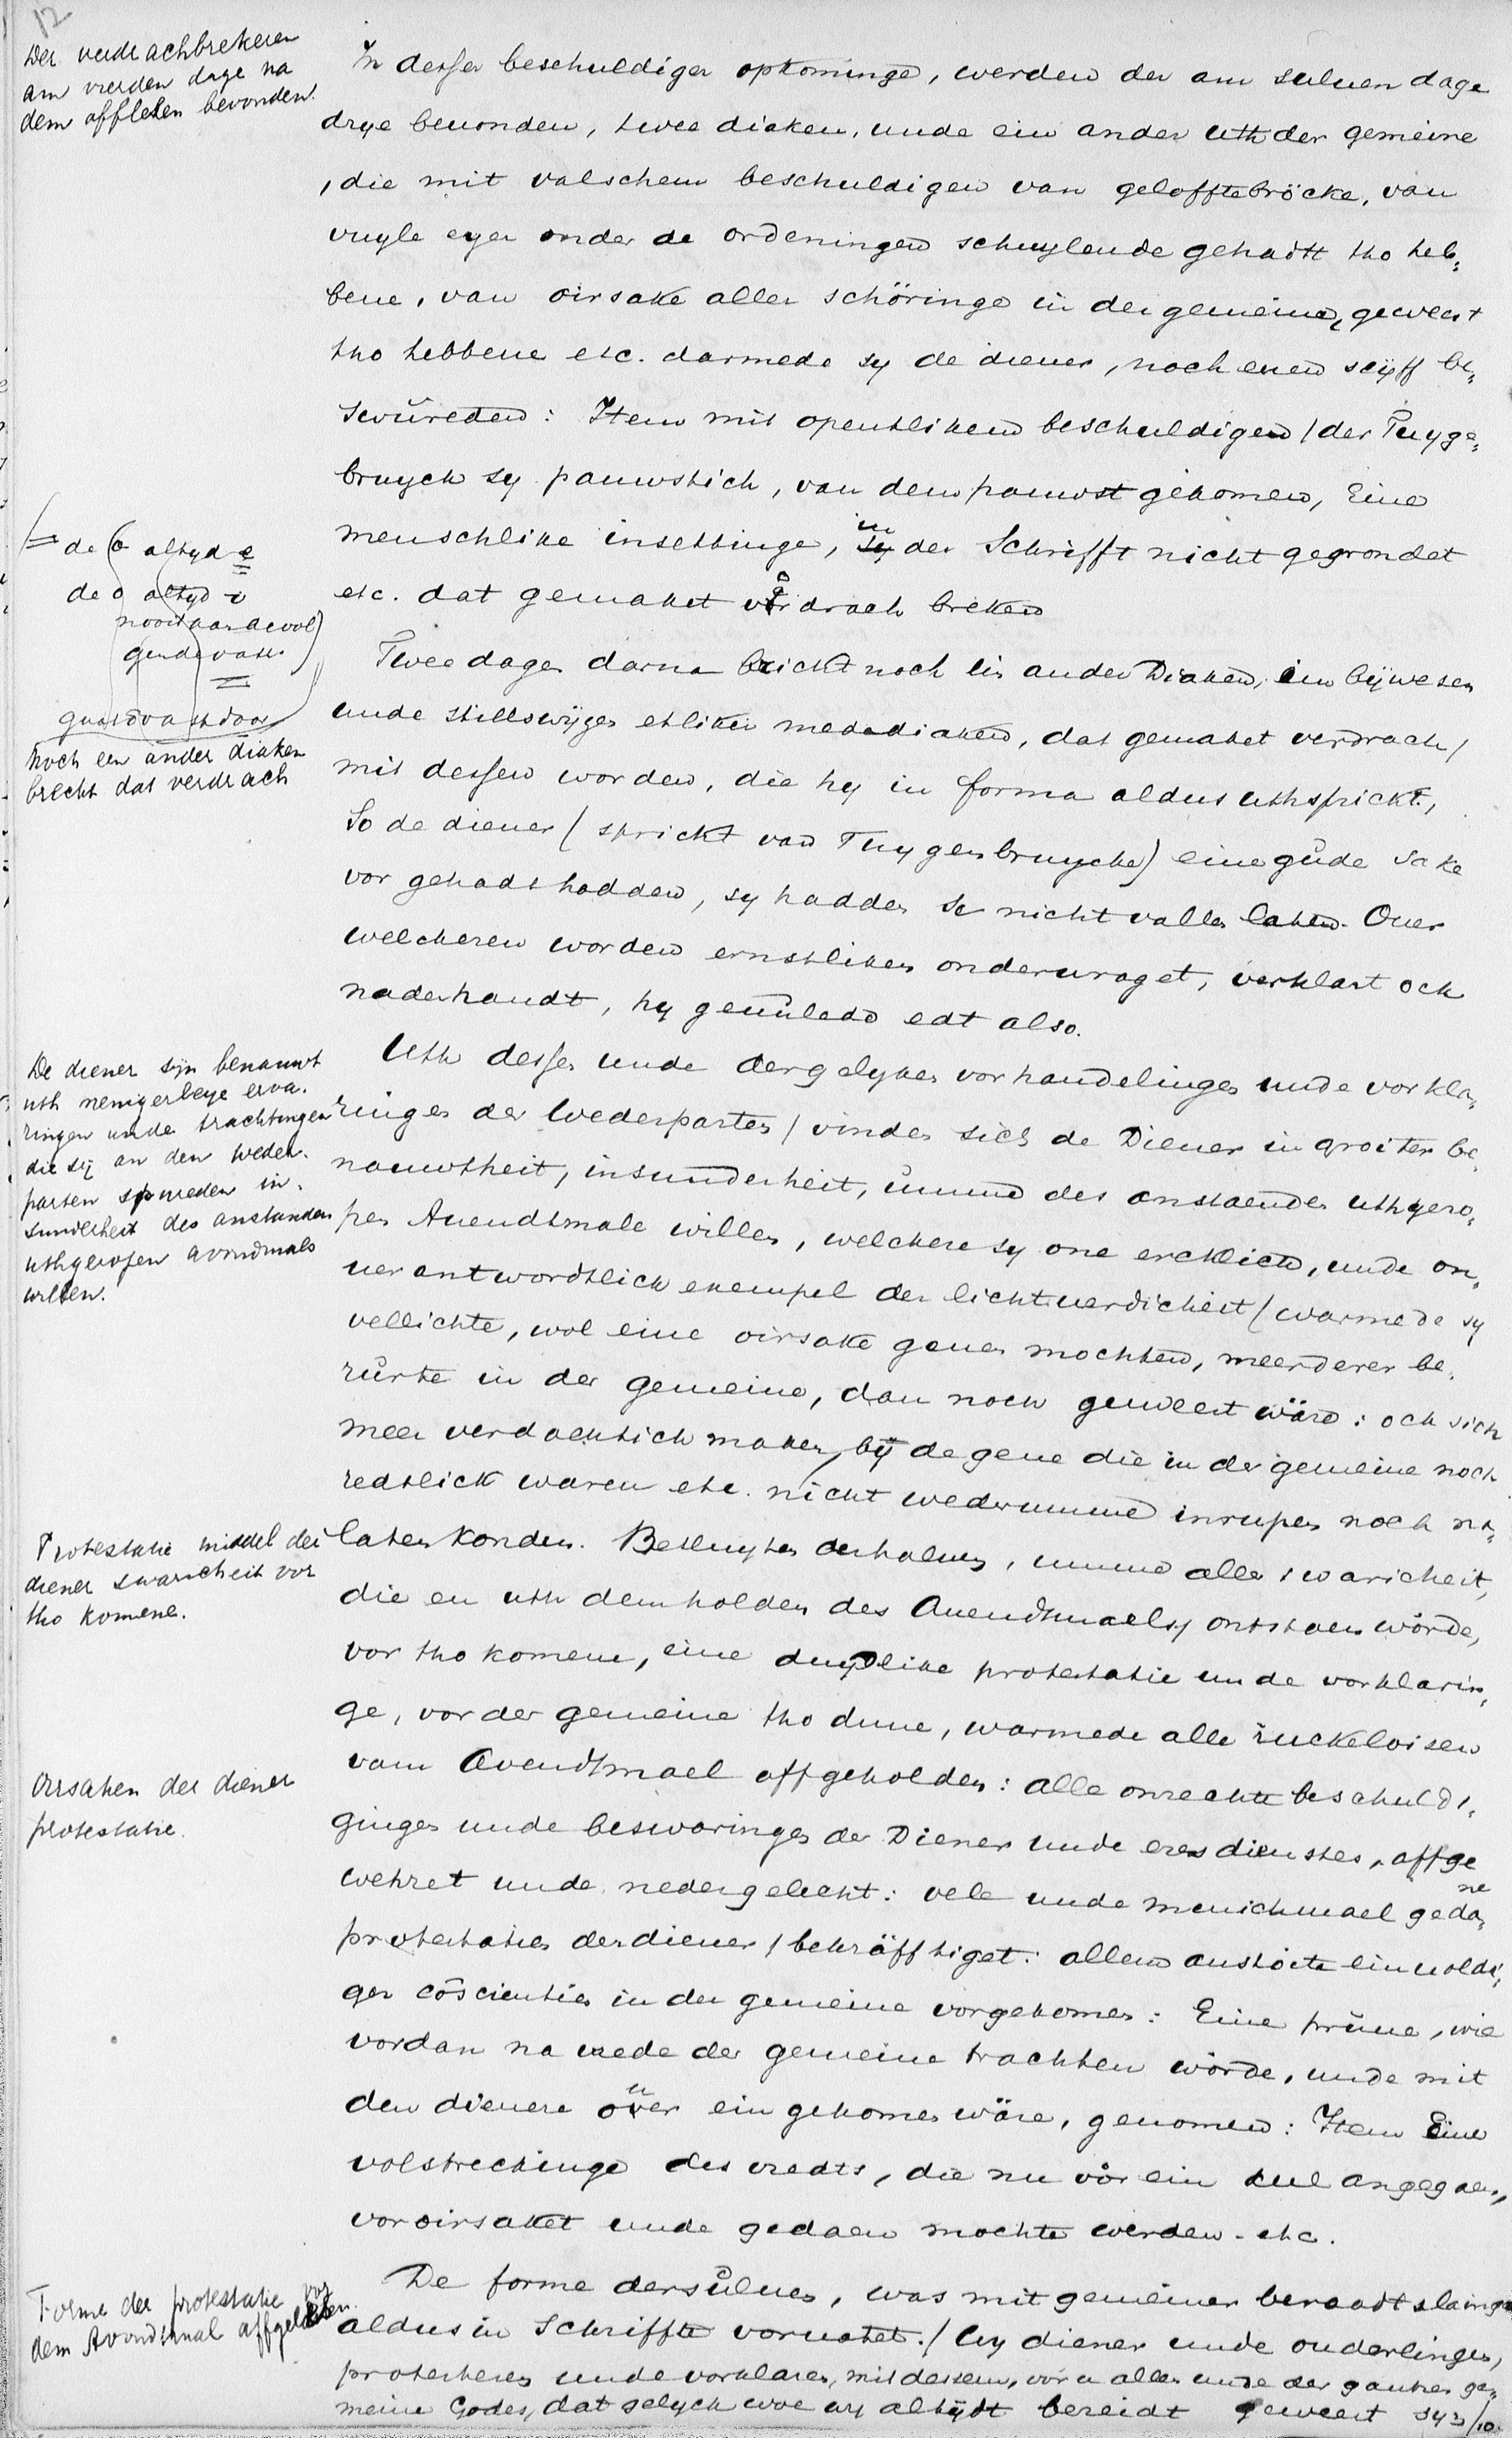 12
Der verdrachbrekeren
am vierden dage na
dem afflesen bevonden.
In desser beschuldiger opkominge, werden der am suluen dage
drye beuonden, twee diaken, unde ein ander uth der gemeine
, die mit valschem beschuldigen van geloffte bröcke, van
vuyle eyer onder de ordeningen schuylende gehadtt tho heb„
bene, van oirsake aller schöringe in der gemeine, geweest
tho hebbene etc. darmede sy de diener, noch euen styff be„
swüreden: Item mit opentlikem beschuldigen / der Tuyge„
bruyck sy pauwstich, van dem pauwst gekomen, Eine
menschlike insettinge, in der Schrifft nicht gegrondet
etc. dat gemaket verdrach breken
= de o altyd e
de o altyd o
Twee dagen darna brickt noch ein ander Diaken, im bywesen
unde stillswijgen etliker medediaken, dat gemaket verdrach /
Noch een ander diaken
brecht dat verdrach
mit dessen worden, die hy in forma aldus uthsprickt,
So de diener ( sprickt van Tuygenbruycke) eine gůde sake
vor gehadt hadden, sy hadden se nicht vallen laten. Ouer
welckeren worden ernstliken onderuraget, verklart ock
naderhandt, hy geuůlede edt also.
De diener sijn benauwt
uth menigerleye erva.
ringen unde trachtingen
die sij an den weder.
parten spureden in.
sunderheit des anstanden
uthgeropen avondmals
willen.
Uth desser unde dergelyken vorhandelingen unde vorkla„
ringen der Wederparten / vinden sich de Diener in groiter be„
nauwtheit, insunderheit, umme des anstaenden uthgero„
pen Auendtmale willen, welckere sy one ercklich, unde on„
uerantwordtlick exempel der lichtuerdicheit ( warmede sy
vellichte, wol eine oirsake geuen mochten, meerderer be„
rürte in der gemeine, dan noch geweest wäre: ock sich
meer verdachtich maken, by degene die in der gemeine noch
redtlick waren etc. nicht wedrumme inrupen noch na„
laten konden. Besluyten derhaluen, umme alle swaricheit,
Protestatie middel der
diener swaricheit vor
tho komene.
die en uth dem holden des Auendtmaels, ontstaen wörde,
vor tho komene, eine duydlike protestatie unde vorklarin„
ge, vor der gemeine tho dune, warmede alle ruckeloisen
vam Avendtmael affgeholden: alle onrechte beschuldi„
Oirsaken der diener
protestatie.
ginges unde beswaringes der Diener unde eres dienstes, affge
wehret unde nedergelecht: vele unde menichmael gedane
protestaties der diener / bekräfftiget: allem anstoite einuoldi„
ger cõscienties in der gemeine vorgekomen: Eine prüue, wie
vordan na vrede der gemeine trachten wörde, unde mit
den dienere ouer ein gekomen wäre, genomen: Item Eine
volstreckinge des vredts, die nu vör ein deel angegaen,
voroirsaket unde gedaen mochte werden. etc.
Forme der protestatie vor
dem Avondtmal affgelesen.
De forme dersůluen, was mit gemeiner beraadtslainge
aldus in Schriffte voruatet. / Wy diener unde ouderlingen,
protesteren unde vorklaren, mit dessem, vör u allen unde der gantzen ge„
meine Godes, dat gelyck wie wy altydt bereidt geweest syn /10.